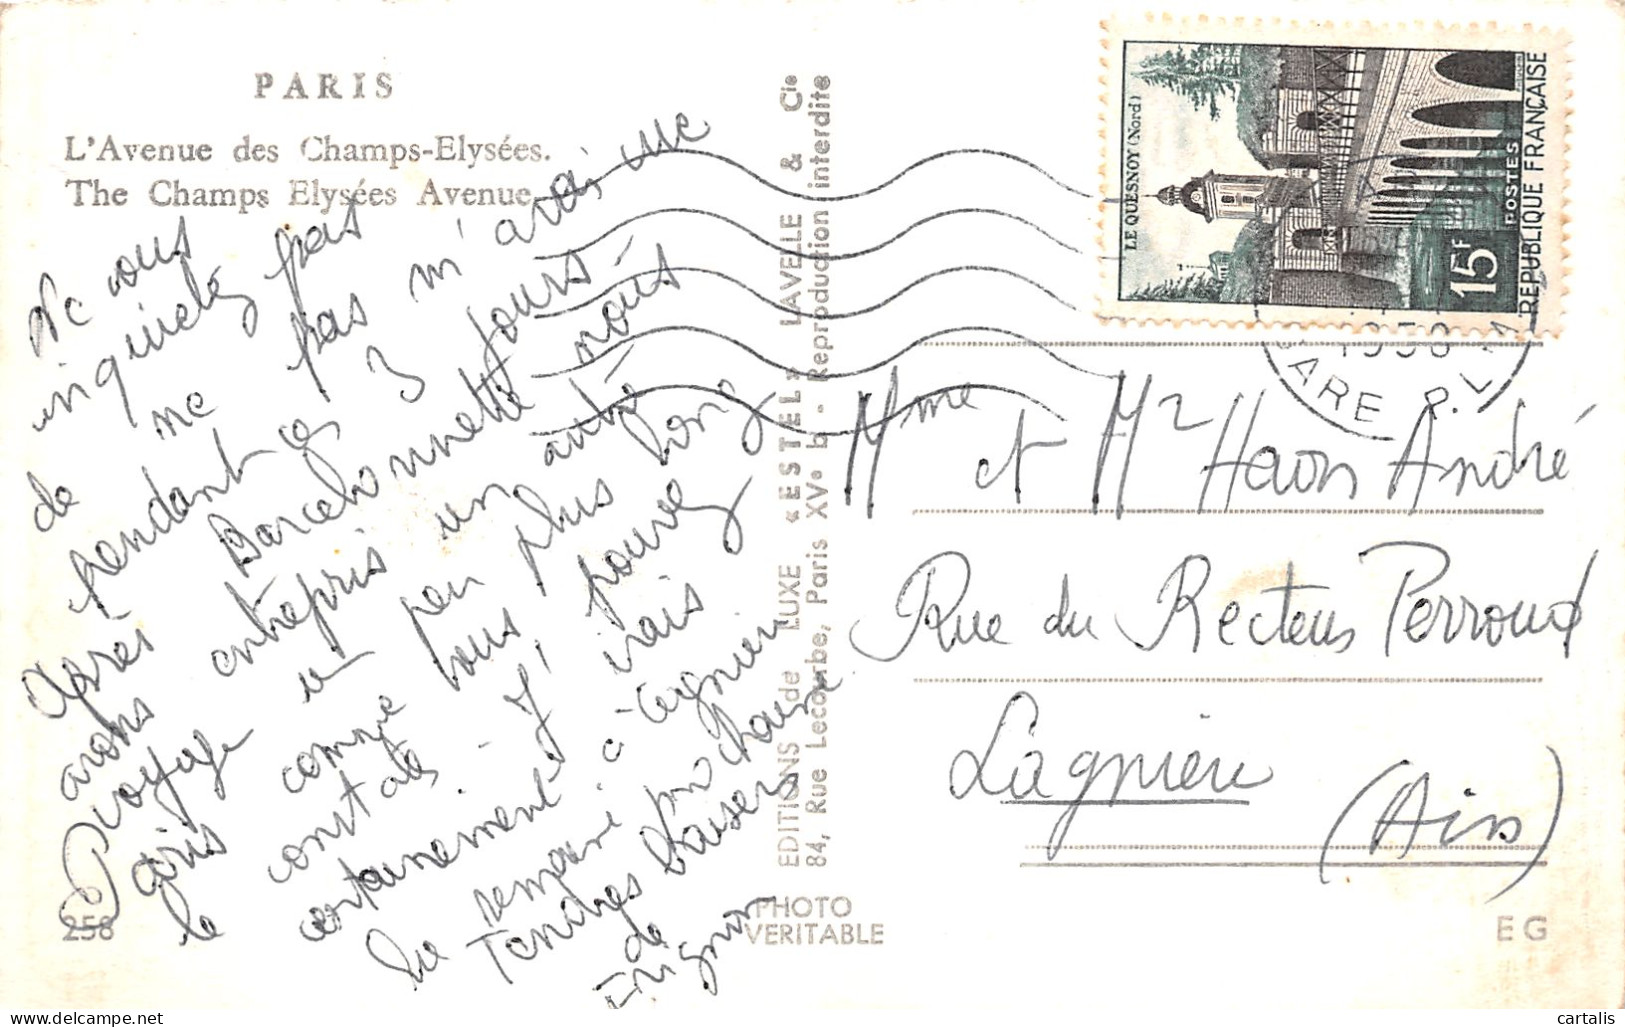 PARIS
L'Avenue des Champs-Elysées.
The Champs Elysées Avenue.
Ne vous
inquietez pas
de ne pas m'avoir vue
pendant ces 3 jours-
Après Barcelonnette nous
avons entrepris un autre
voyage un peu plus long
comme vous pouvez
le constater. J'irais
certainement à Lagnieu
la semaine prochaine
Tendres baisers
de
258
EDITIONS de LUXE «ESTEL» LAVELLE & Cie
84, Rue Lecourbe, Paris XVe b - Reproduction interdite
PHOTO
VERITABLE
LE QUESNOY (Nord)
15F
POSTES
REPUBLIQUE FRANÇAISE
GARE P.L.M
Mme et Mr Haon André
Rue du Recteur Perroud
Lagnieu
(Ain)
EG
cartalis
www.delcampe.net